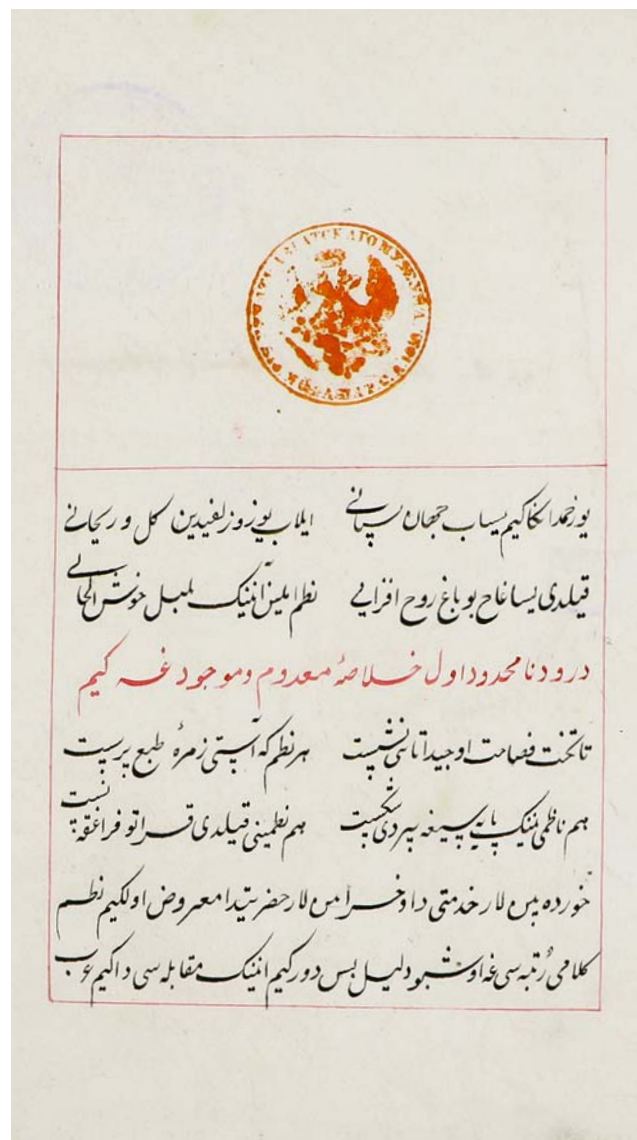 یوز حمد انکا کیم یساب جهان بستانی ایلاب یوز و زلفیدین کل و ریحانی
قیلدی یساغاج بو باغ روح افزایی نظم ایلین آنینک بلبل خوش الحانی
درود نامحدود اول خلاصهٔ معدوم و موجود غه کیم
تا تخت فصاحت اوجیدا تاتی نشست هر نظم که آیتی زمرهٔ طبع پرست
هم ناظمی نینک پایه سیغه بیردی شکست هم نظمینی قیلدی قراتو فراغقه پست
خورده بین لار خدمتی دا و خرامین لار حضرتیدا معروض اولکیم نظم
کلامی رتبه سی غه اوشبو دلیل بس دور کیم انینک مقابله سی دا کیم عرب